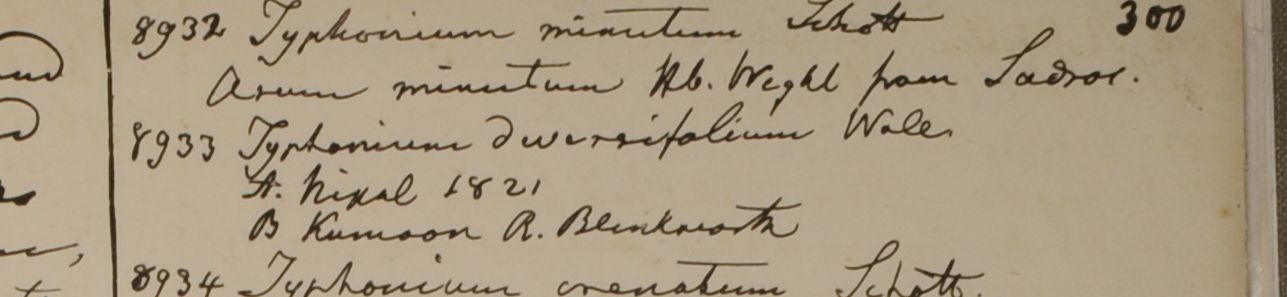 300
8932 Typhonium minutum Schott
Arum minutum Hb. Wight from Sadras.
8933 Typhonium diversifolium Wall.
A. Nipal 1821
B Kumaon R. Blinkworth
8934 Typhonium crenatum Schott.